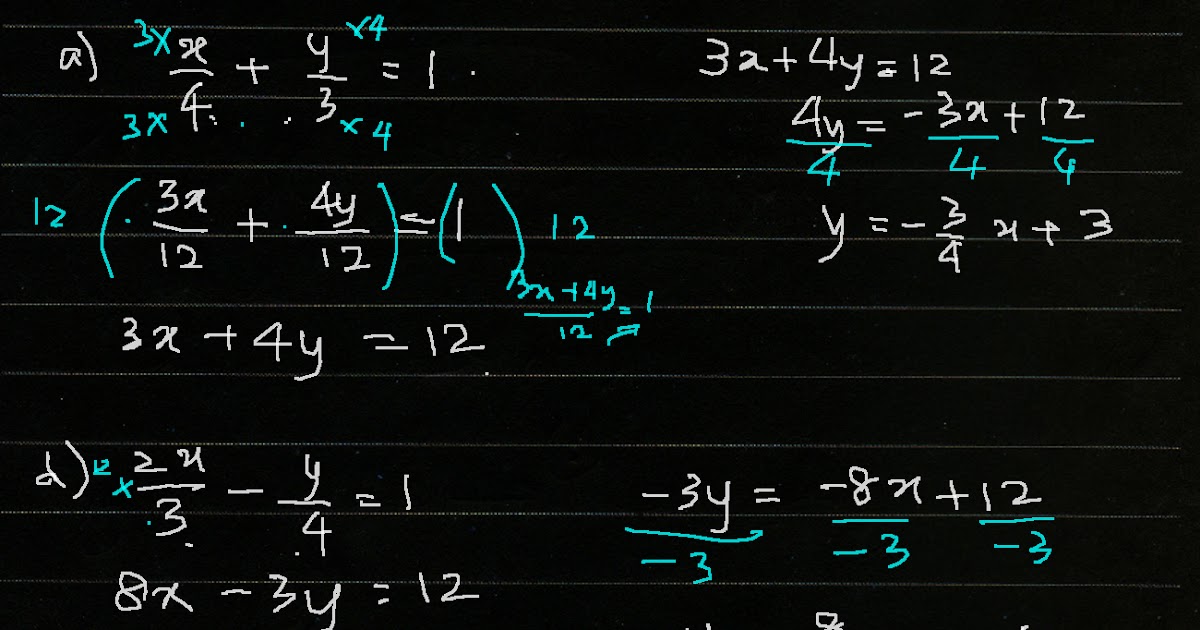 a) 3× x/4 ×4 + y/3 = 1
3× ×4
12 ( 3x/12 + 4y/12 ) = ( 1 ) 12
(3x + 4y)/12 = 1
3x + 4y = 12
3x + 4y = 12
4y/4 = -3x/4 + 12/4
y = -3/4 x + 3
d) 12 × 2x/3 - y/4 = 1
8x - 3y = 12
-3y/-3 = -8x/-3 + 12/-3